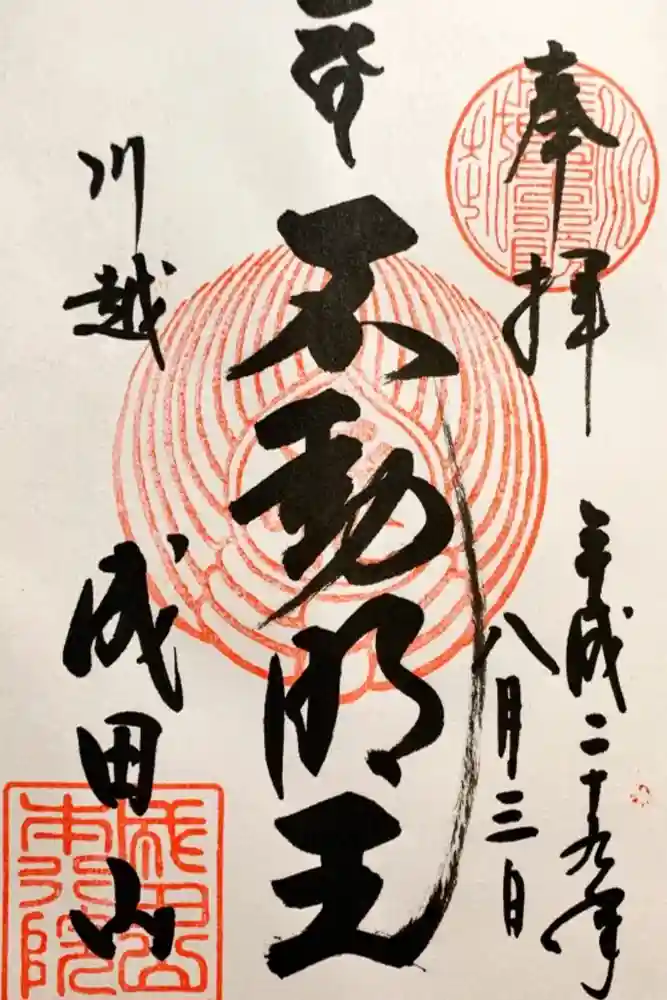 奉拝
平成二十九年
八月三日
不動明王
川越
成田山
成田山
本行院